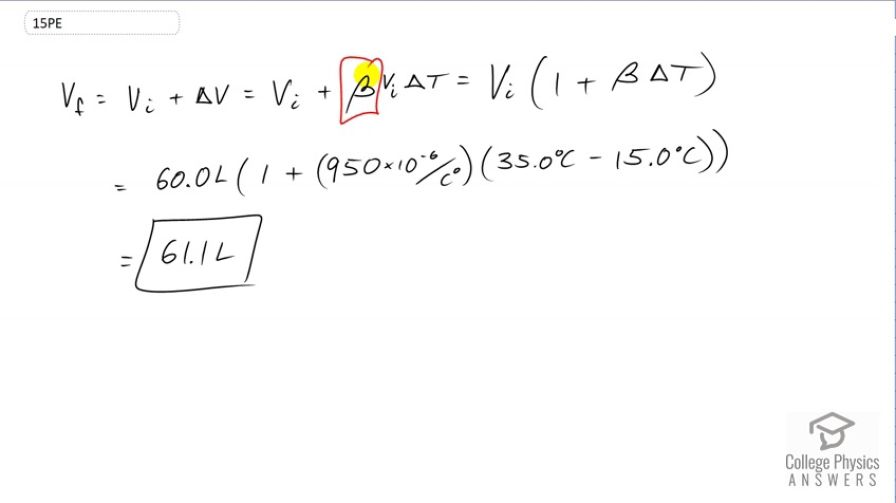 15PE
V_f = V_i + ΔV = V_i + β V_i ΔT = V_i (1 + β ΔT)
= 60.0L (1 + (950×10⁻⁶/C°)(35.0°C - 15.0°C))
= 61.1L
College Physics
ANSWERS